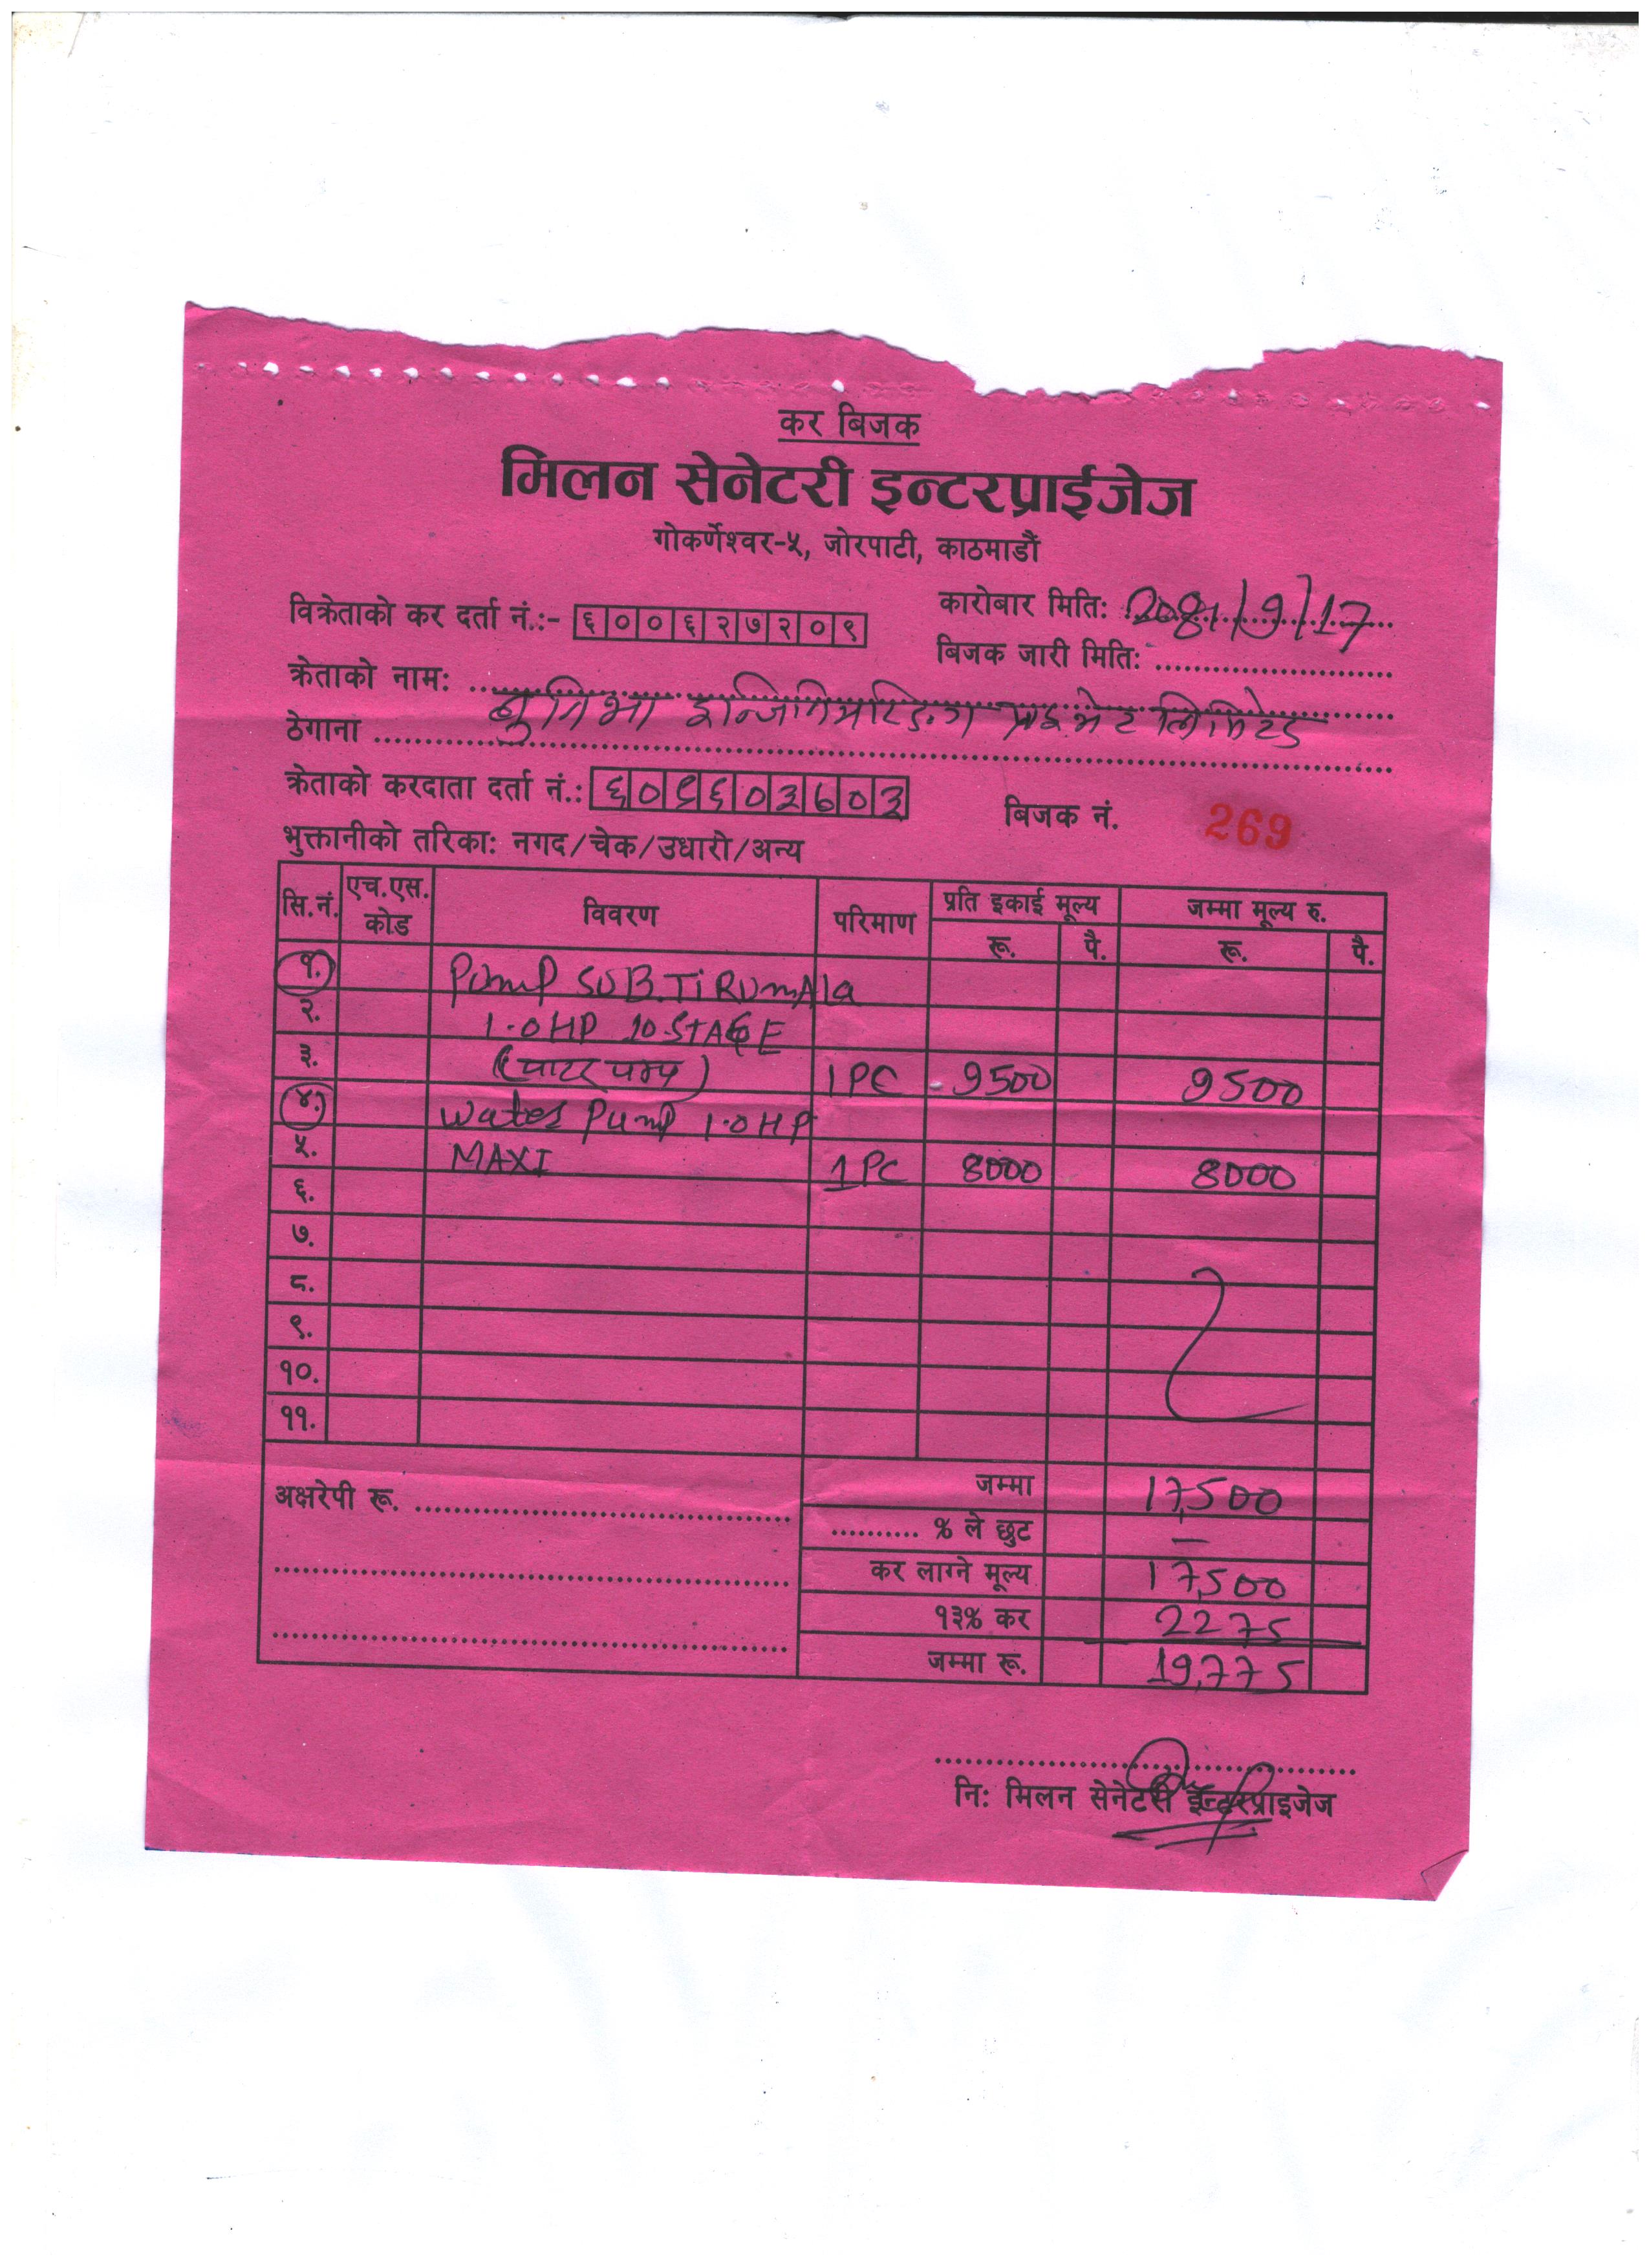 कर बिजक
मिलन सेनेटरी इन्टरप्राईजेज
गोकर्णेश्वर-५, जोरपाटी, काठमाडौं
विक्रेताको कर दर्ता नं.:- ६००६२७२०९
कारोबार मिति: 2081/9/17
बिजक जारी मिति: ........................
क्रेताको नाम: इन्जिनियरिङ्ग प्राइभेट लिमिटेड
ठेगाना
क्रेताको करदाता दर्ता नं.: ६०९६०३७०३
बिजक नं. 269
भुक्तानीको तरिका: नगद/चेक/उधारो/अन्य
सि.नं. एच.एस. कोड विवरण परिमाण प्रति इकाई मूल्य जम्मा मूल्य रु.
रू. पै. रू. पै.
१. Pump SUB.TiRUmAla
२. 1.0HP 10 STAGE
३. (वाटर पम्प) 1PC 9500 9500
४. Water Pump 1.0HP
५. MAXI 1PC 8000 8000
६.
७.
८.
९.
१०.
११.
अक्षरेपी रू.
जम्मा 17,500
.......... % ले छुट –
कर लाग्ने मूल्य 17,500
१३% कर 2275
जम्मा रू. 19,775
नि: मिलन सेनेटरी इन्टरप्राइजेज